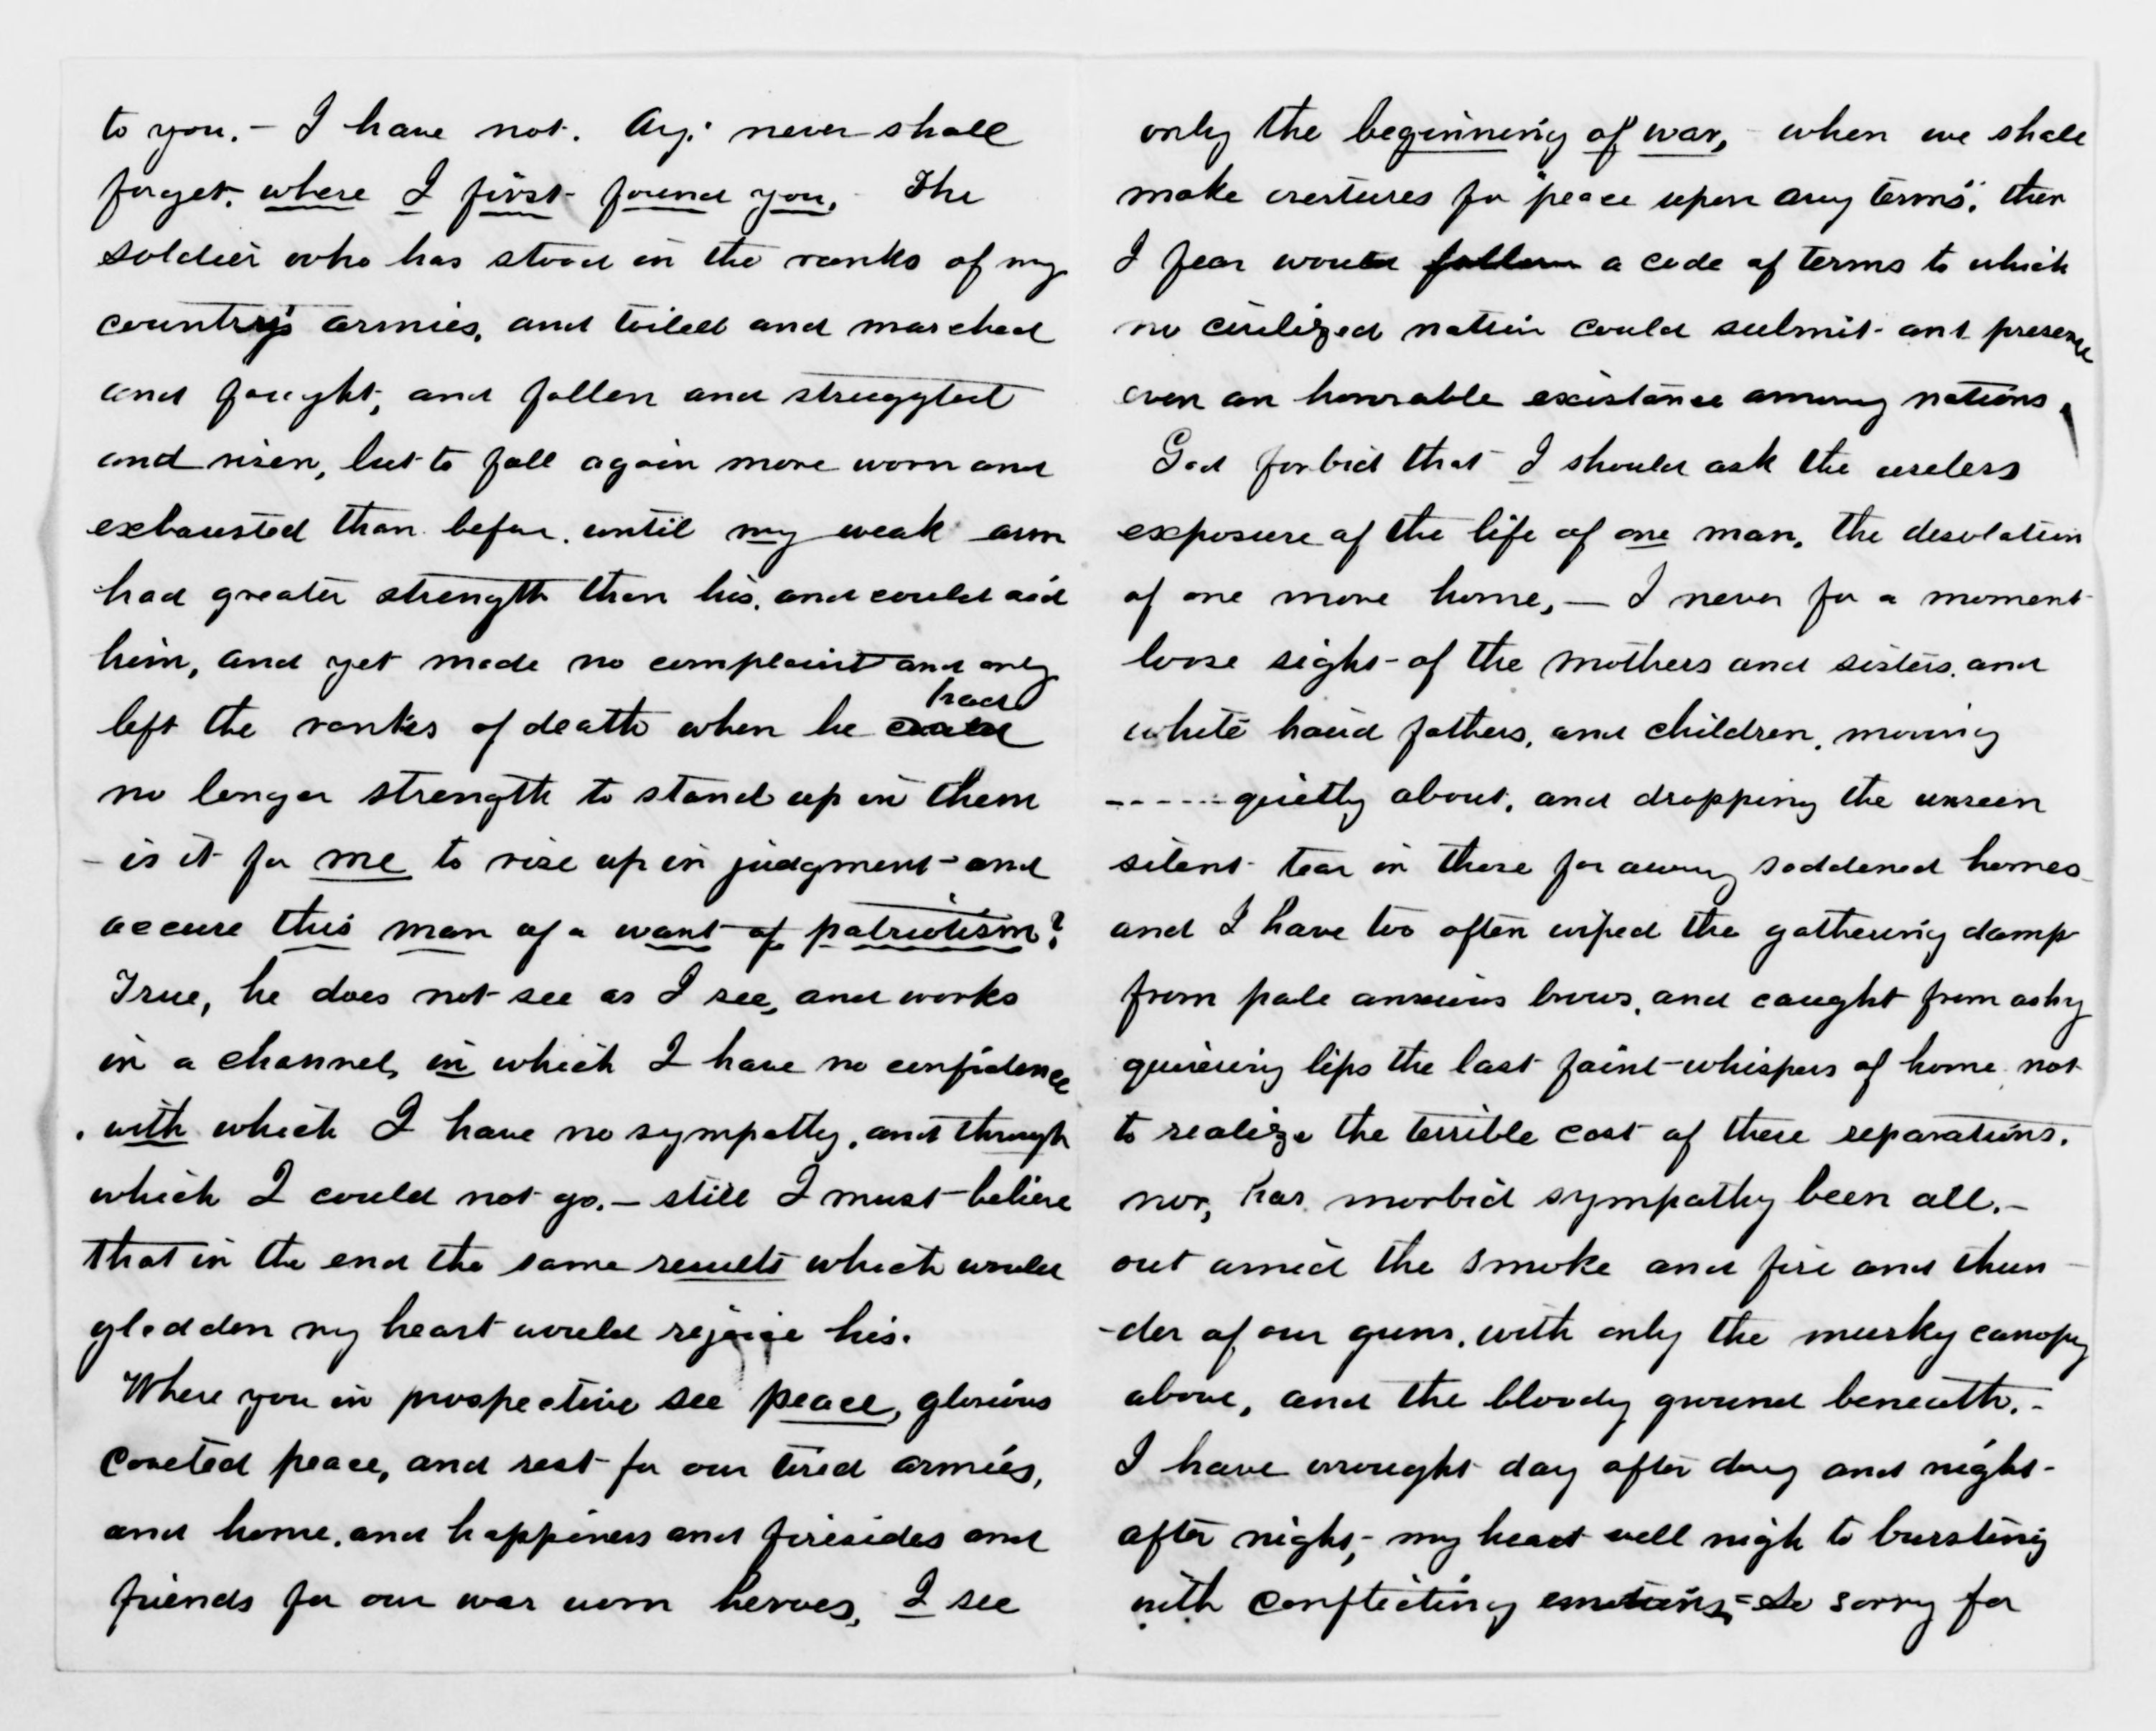 to you. – I have not. Ay. never shall
forget. where I first found you. The
soldier who has stood in the ranks of my
country's armies, and toiled and marched
and fought, and fallen and struggled
and risen, but to fall again more worn and
exhausted than before. until my weak arm
had greater strength than his, and could aid
him, and yet made no complaint and only
left the ranks of death when he could had
no longer strength to stand up in them
– is it for me to rise up in judgment and
accuse this man of a want of patriotism?
True, he does not see as I see, and works
in a channel, in which I have no confidence
, with which I have no sympathy, and through
which I could not go. – still I must believe
that in the end the same results which would
gladden my heart would rejoice his.
Where you in prospective see peace, glorious
coveted peace, and rest for our tired armies,
and home, and happiness and firesides and
friends for our war worn heroes, I see
only the beginning of war, – when we shall
make overtures for "peace upon any terms", then
I fear would follow a code of terms to which
no civilized nation could submit and preserve
even an honorable existance among nations.
God forbid that I should ask the useless
exposure of the life of one man, the desolation
of one more home, – I never for a moment
loose sight of the mothers and sisters, and
white haird fathers, and children, moving
----- quietly about, and dropping the unseen
silent tear in those far away saddened homes
and I have too often wiped the gathering damp
from pale anxious brows, and caught from ashy
quivering lips the last faint whispers of home not
to realize the terrible cost of these separations.
nor, has morbid sympathy been all. –
out amid the smoke and fire and thun
-der of our guns, with only the murky canopy
above, and the bloody ground beneath. –
I have wrought day after day and night
after night, – my heart well nigh to bursting
with conflicting emotions, – so sorry for